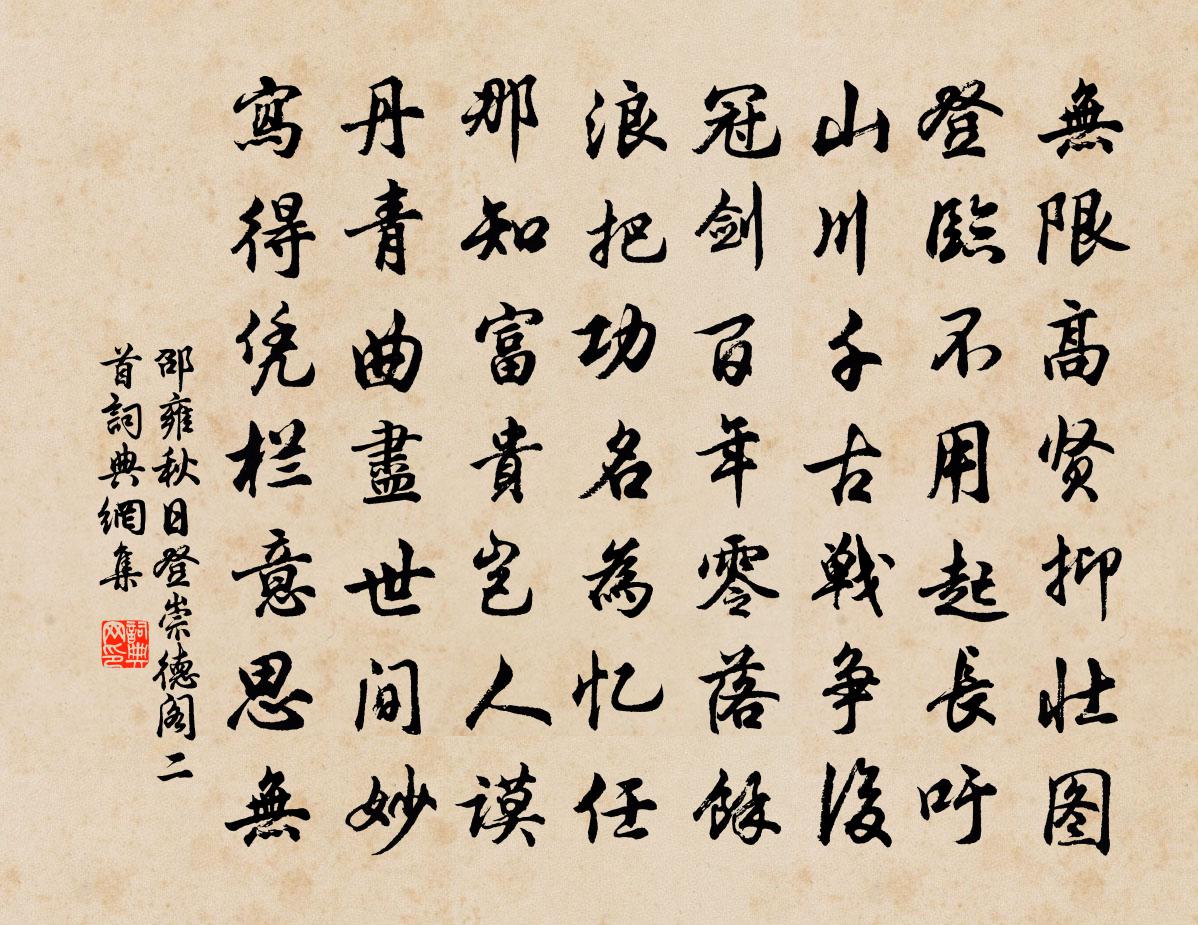 無限高贤抑壮图
登臨不用起長吁
山川千古戰争後
冠剑百年零落餘
浪把功名為忆任
那知富貴岂人谟
丹青曲盡世间妙
寫得凭栏意思無
邵雍秋日登崇德阁二
首詞典網集
詞典
网印